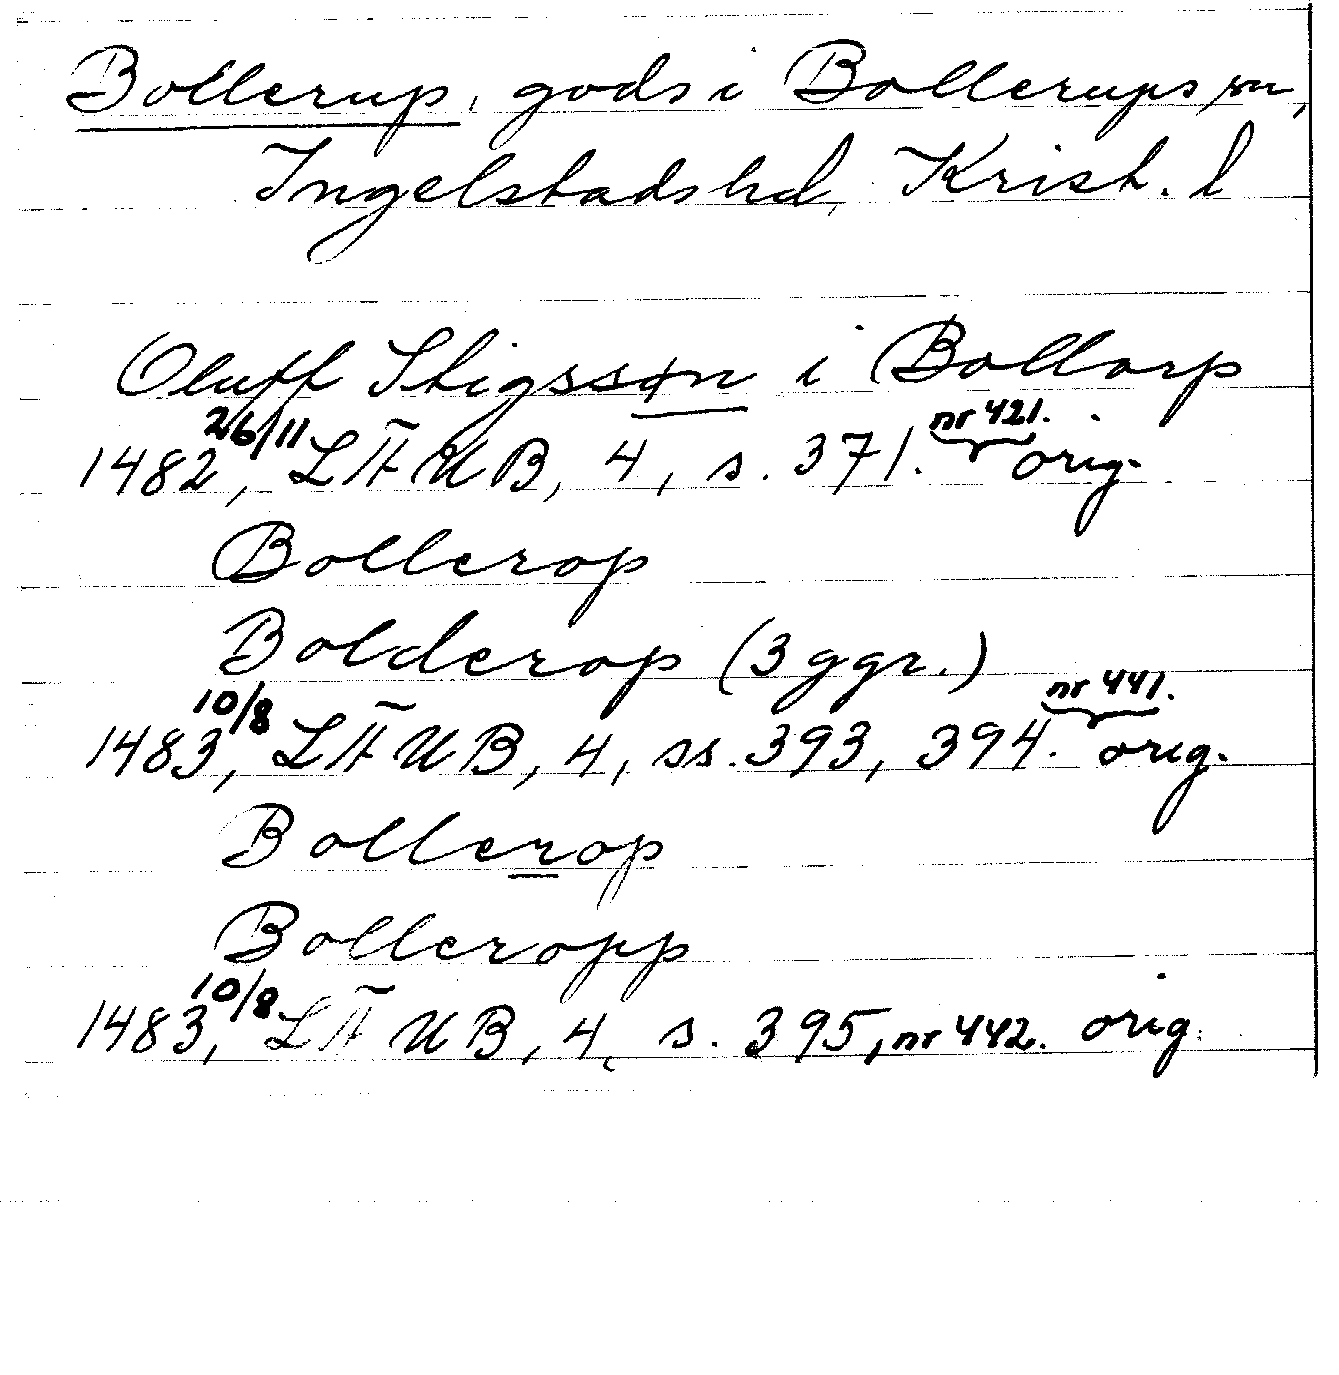 Bollerup, gods i Bollerups sn,
Ingelstads hd, Krist. l
Oluff Stigssøn i Bollorp
1482 26/11, LÄUB, 4, s. 371. nr 421. orig.
Bollerop
Bolderop (3 ggr.)
1483 10/8, LÄUB, 4, ss. 393, 394. nr 441. orig.
Bollerop
Bolleropp
1483, 10/8 LÄUB, 4, s. 395, nr 442. orig.